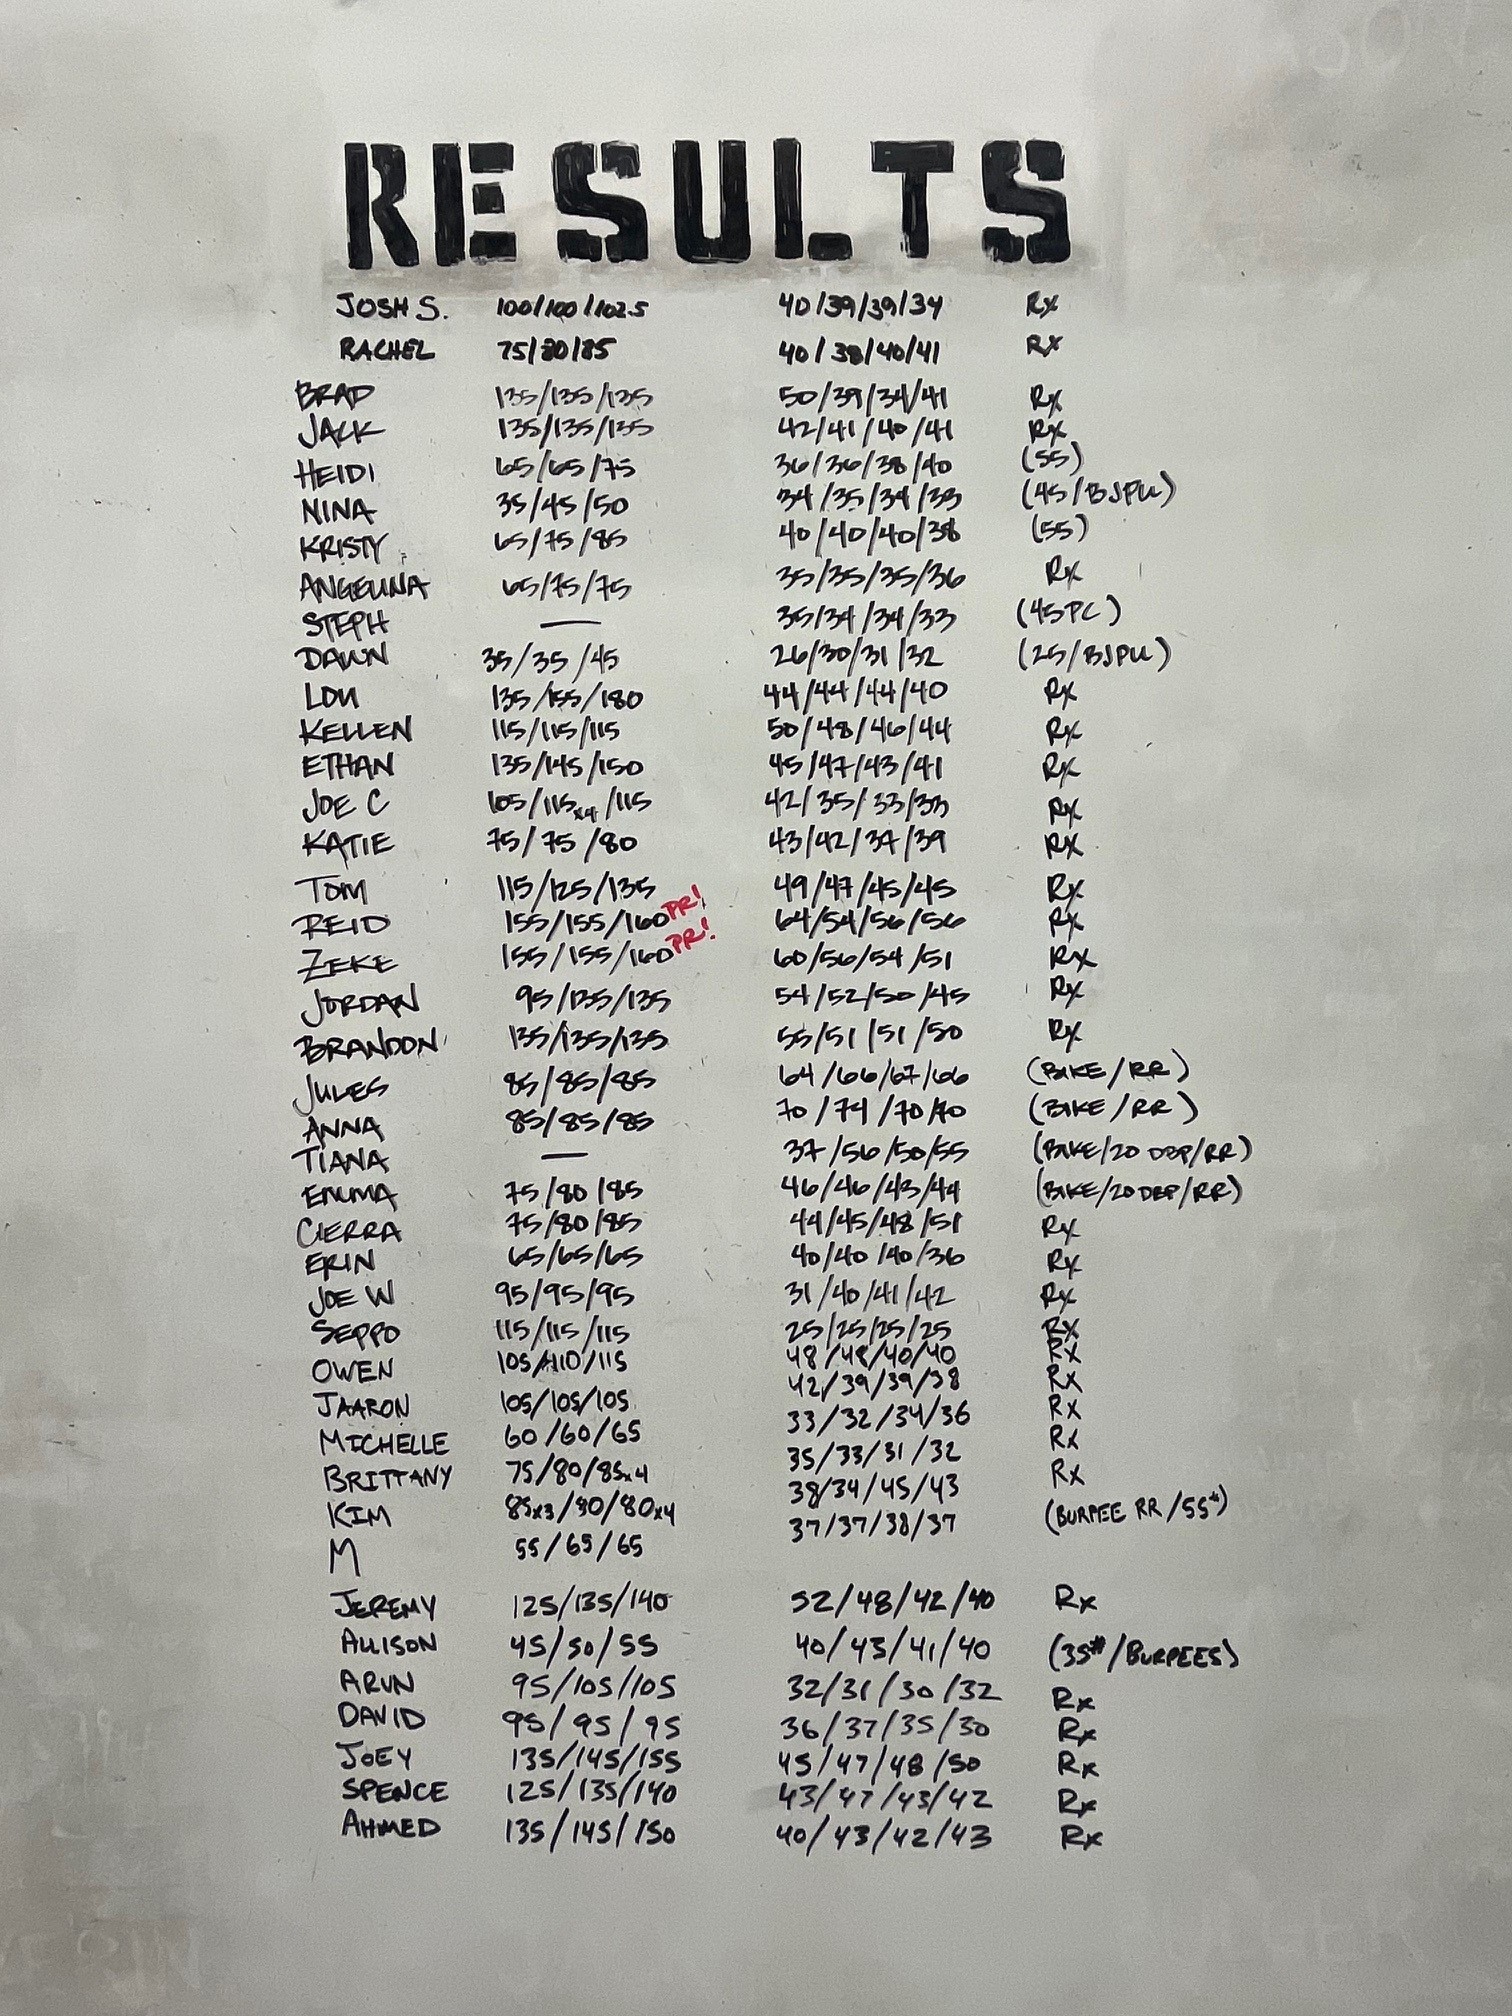 RESULTS
JOSH S. 100/100/102.5 40/39/39/34 Rx
RACHEL 75/80/85 40/38/40/41 Rx
BRAD 135/135/135 50/39/34/41 Rx
JACK 135/135/135 42/41/40/41 Rx
HEIDI 65/65/75 36/36/38/40 (55)
NINA 35/45/50 34/35/34/33 (45/BJPU)
KRISTY 65/75/85 40/40/40/38 (55)
ANGELINA 65/75/75 35/35/35/36 Rx
STEPH — 35/34/34/33 (45PC)
DAWN 35/35/45 26/30/31/32 (25/BJPU)
LOU 135/155/180 44/44/44/40 Rx
KELLEN 115/115/115 50/48/46/44 Rx
ETHAN 135/145/150 45/47/43/41 Rx
JOE C 105/115x4/115 42/35/33/33 Rx
KATIE 75/75/80 43/42/37/39 Rx
TOM 115/125/135 49/47/45/45 Rx
REID 155/155/160 PR! 64/54/56/56 Rx
ZEKE 155/155/160 PR! 60/56/54/51 Rx
JORDAN 95/135/135 54/52/50/45 Rx
BRANDON 135/135/135 55/51/51/50 Rx
JULES 85/85/85 64/66/67/66 (BIKE/RR)
ANNA 85/85/85 70/74/70/70 (BIKE/RR)
TIANA — 37/56/50/55 (BIKE/20 DBP/RR)
EMMA 75/80/85 46/46/43/44 (BIKE/20 DBP/RR)
CIERRA 75/80/85 44/45/48/51 Rx
ERIN 65/65/65 40/40/40/36 Rx
JOE W 95/95/95 31/40/41/42 Rx
SEPPO 115/115/115 25/25/25/25 Rx
OWEN 105/110/115 48/48/40/40 Rx
JAARON 105/105/105 42/39/39/38 Rx
MICHELLE 60/60/65 33/32/34/36 Rx
BRITTANY 75/80/85x4 35/33/31/32 Rx
KIM 85x3/80/80x4 38/34/45/43 Rx
M 55/65/65 37/37/38/37 (BURPEE RR/55#)
JEREMY 125/135/140 52/48/42/40 Rx
ALLISON 45/50/55 40/43/41/40 (35#/BURPEES)
ARUN 95/105/105 32/31/30/32 Rx
DAVID 95/95/95 36/37/35/30 Rx
JOEY 135/145/155 45/47/48/50 Rx
SPENCE 125/135/140 43/47/43/42 Rx
AHMED 135/145/150 40/43/42/43 Rx